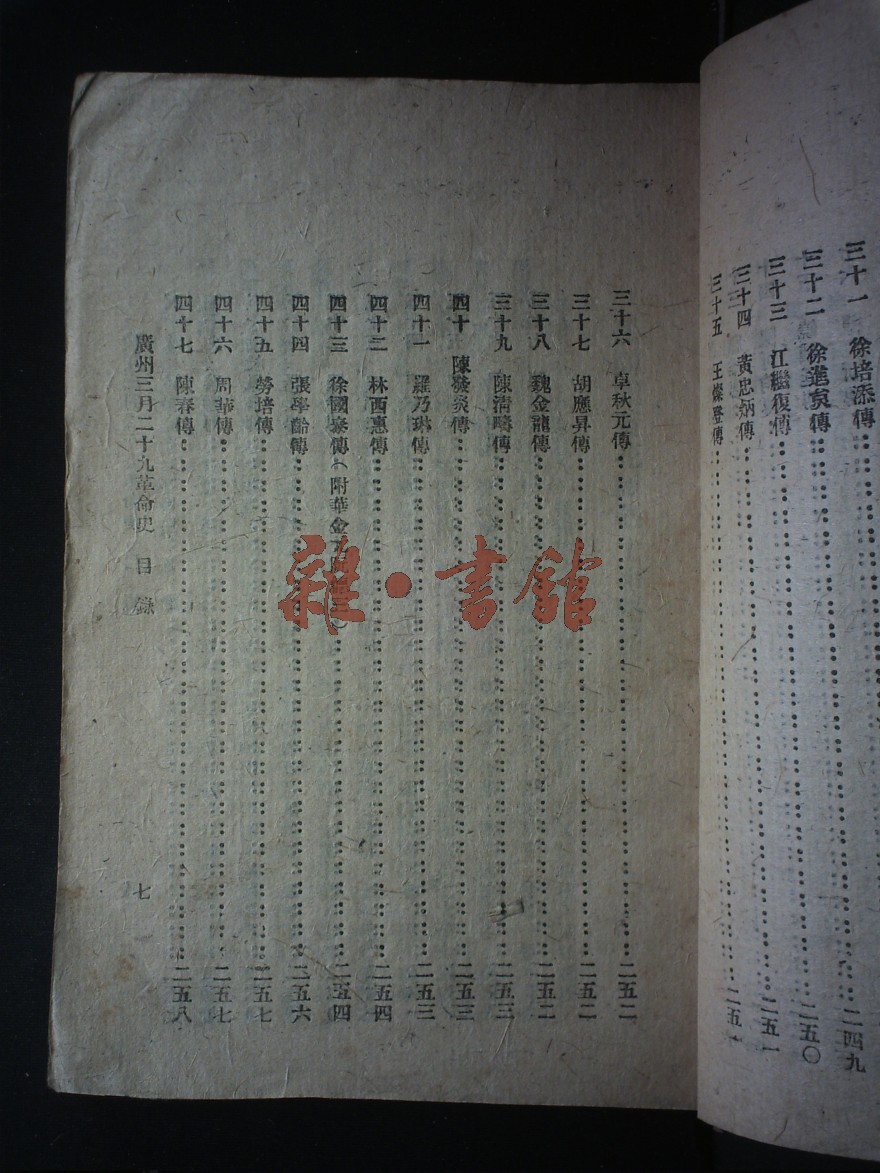 三十一 徐培添傳……二四九
三十二 徐進炱傳……二五〇
三十三 江繼復傳……二五一
三十四 黃忠炳傳……
三十五 王燦登傳……二五一
三十六 卓秋元傳……二五二
三十七 胡應昇傳……二五二
三十八 魏金龍傳……二五二
三十九 陳清疇傳……二五三
四十 陳發炎傳……二五三
四十一 羅乃琳傳……二五三
四十二 林西惠傳……二五四
四十三 徐國泰傳（附華金元……）……二五四
四十四 張學齡傳……二五六
四十五 勞培傳……二五七
四十六 周華傳……二五七
四十七 陳春傳……二五八
廣州三月二十九革命史 目錄 七
雜·書館